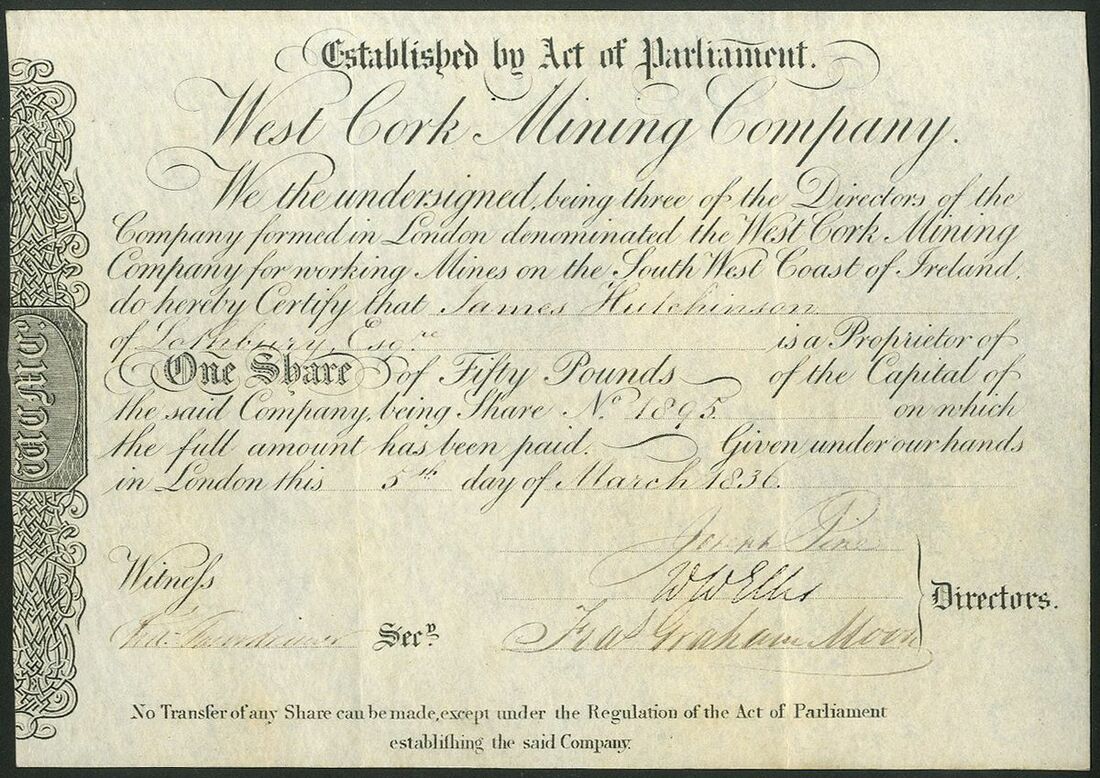 Established by Act of Parliament.
West Cork Mining Company.
We the undersigned, being three of the Directors of the
Company formed in London denominated the West Cork Mining
Company for working Mines on the South West Coast of Ireland,
do hereby Certify that James Hutchinson
of Lothbury, Esqre is a Proprietor of
One Share of Fifty Pounds of the Capital of
the said Company, being Share No 1895 on which
the full amount has been paid. Given under our hands
in London this 5th day of March 1836.
Joseph Pine
Witneſs
W W Ellis
Directors.
Secy.
Fras Graham Moon
No Transfer of any Share can be made, except under the Regulation of the Act of Parliament
establiſhing the said Company.
WCMC.